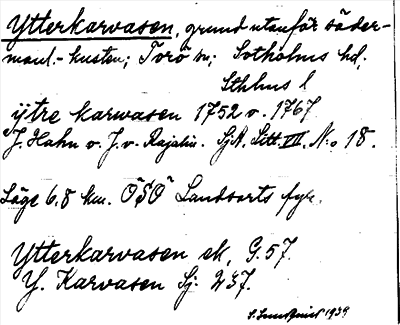 Ytterkarvasen, grund utanför söder-
manl.-kusten; Torö sn; Sotholms hd;
Sthlms l
ÿtre karwasen 1752 o. 1767
J. Hahn o. J. v. Rajalin. SjA. Litt. VII. No 18.
Läge 6,8 km. OSO Landsorts fyr.
Ytterkarvasen ek, G. 57.
Y. Karvasen Sj: 237.
1939